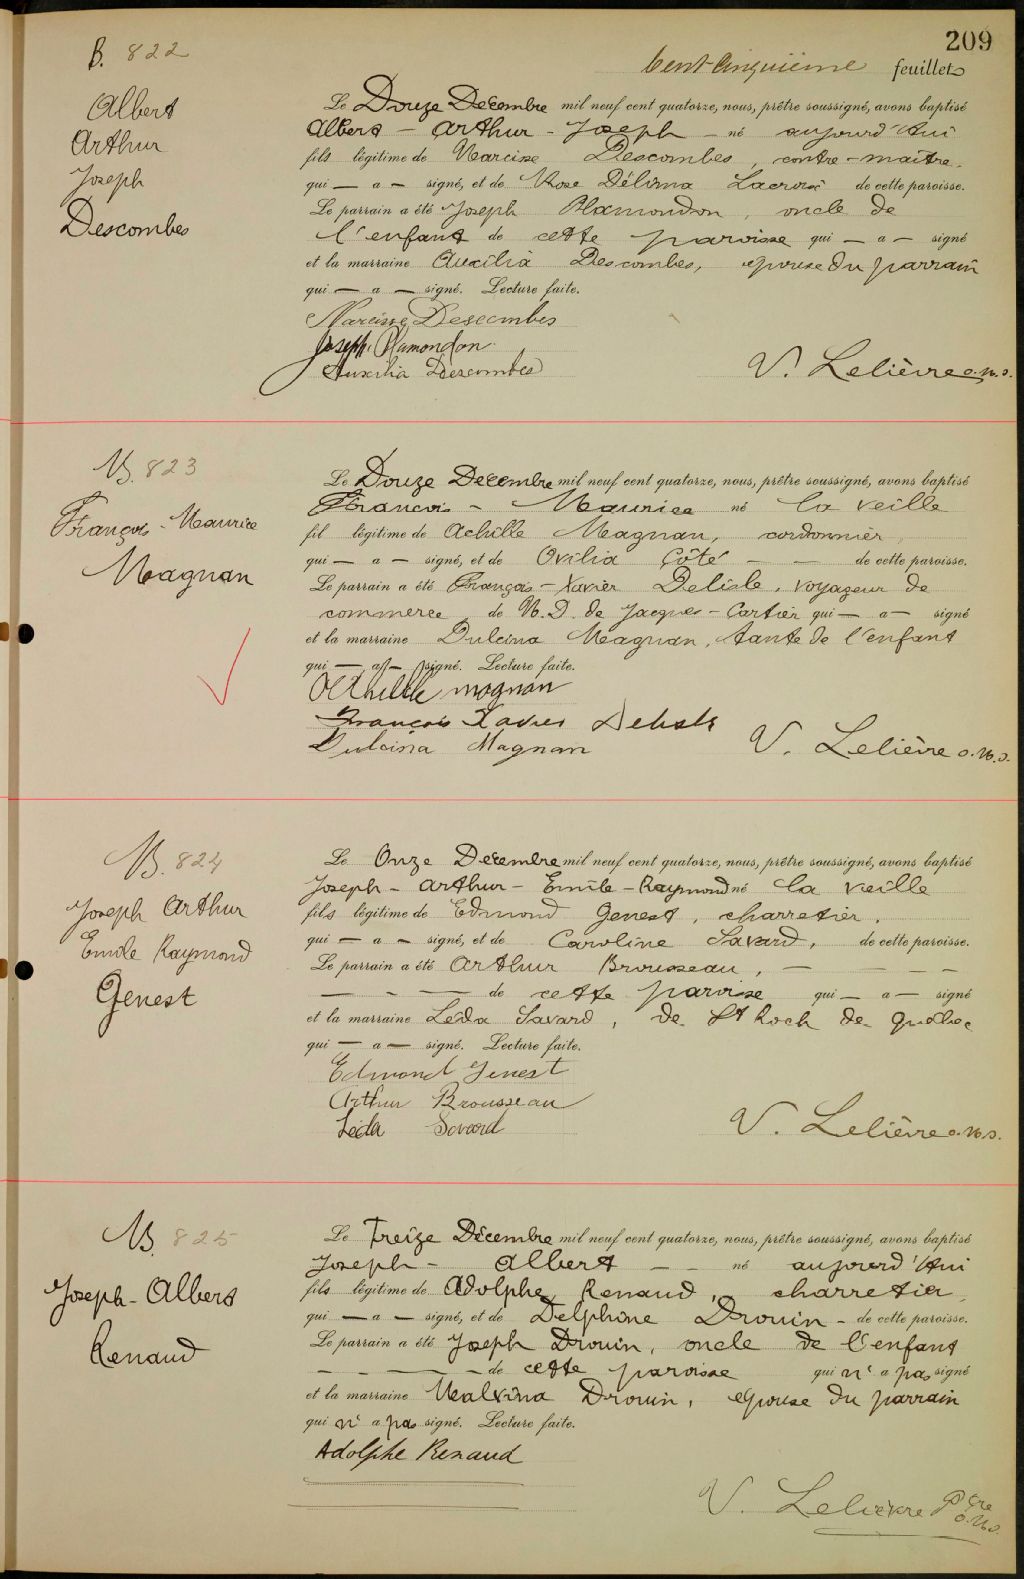 209
Cent-Cinquième feuillet
B. 822
Albert
Arthur
Joseph
Descombes
Le Douze Décembre mil neuf cent quatorze, nous, prêtre soussigné, avons baptisé
Albert - Arthur - Joseph - né aujourd'hui
fils légitime de Narcisse Descombes, contre-maître.
qui — a — signé, et de Rose Délima Lacroix de cette paroisse.
Le parrain a été Joseph Plamondon, oncle de
l'enfant de cette paroisse qui — a — signé
et la marraine Auxilia Descombes, epouse du parrain
qui — a — signé. Lecture faite.
Narcisse Descombes
Joseph Plamondon
Auxilia Descombes
V. Lelièvre o.m.i.
B. 823
François - Maurice
Magnan
Le Douze Décembre mil neuf cent quatorze, nous, prêtre soussigné, avons baptisé
François - Maurice né la veille
fil légitime de Achille Magnan, cordonnier,
qui — a — signé, et de Ovilia Côté - - de cette paroisse.
Le parrain a été François - Xavier Delisle, voyageur de
commerce, de N. D. de Jacques - Cartier qui — a — signé
et la marraine Dulcina Magnan, tante de l'enfant
qui — a — signé. Lecture faite.
Achille magnan
François Xavier Delisle
Dulcina Magnan
V. Lelièvre o.m.i.
B. 824
Joseph Arthur
Emile Raymond
Genest
Le Onze Décembre mil neuf cent quatorze, nous, prêtre soussigné, avons baptisé
Joseph - Arthur - Emile - Raymond né la veille
fils légitime de Edmond Genest, charretier.
qui — a — signé, et de Caroline Savard, de cette paroisse.
Le parrain a été Arthur Brousseau, — - - -
— - — de cette paroisse qui — a — signé
et la marraine Léda Savard, de St Roch de Québec
qui — a — signé. Lecture faite.
Edmond Genest
Arthur Brousseau
Léda Savard
V. Lelièvre o.m.i.
B. 825
Joseph - Albert
Renaud
Le Treize Décembre mil neuf cent quatorze, nous, prêtre soussigné, avons baptisé
Joseph - Albert - - né aujourd'hui
fils légitime de Adolphe Renaud, charretier,
qui — a — signé, et de Delphine Drouin - de cette paroisse.
Le parrain a été Joseph Drouin, oncle de l'enfant
- - — - — de cette paroisse qui n'a pas signé
et la marraine Malvina Drouin, epouse du parrain
qui n'a pas signé. Lecture faite.
Adolphe Renaud
V. Lelièvre Ptre
o.m.i.